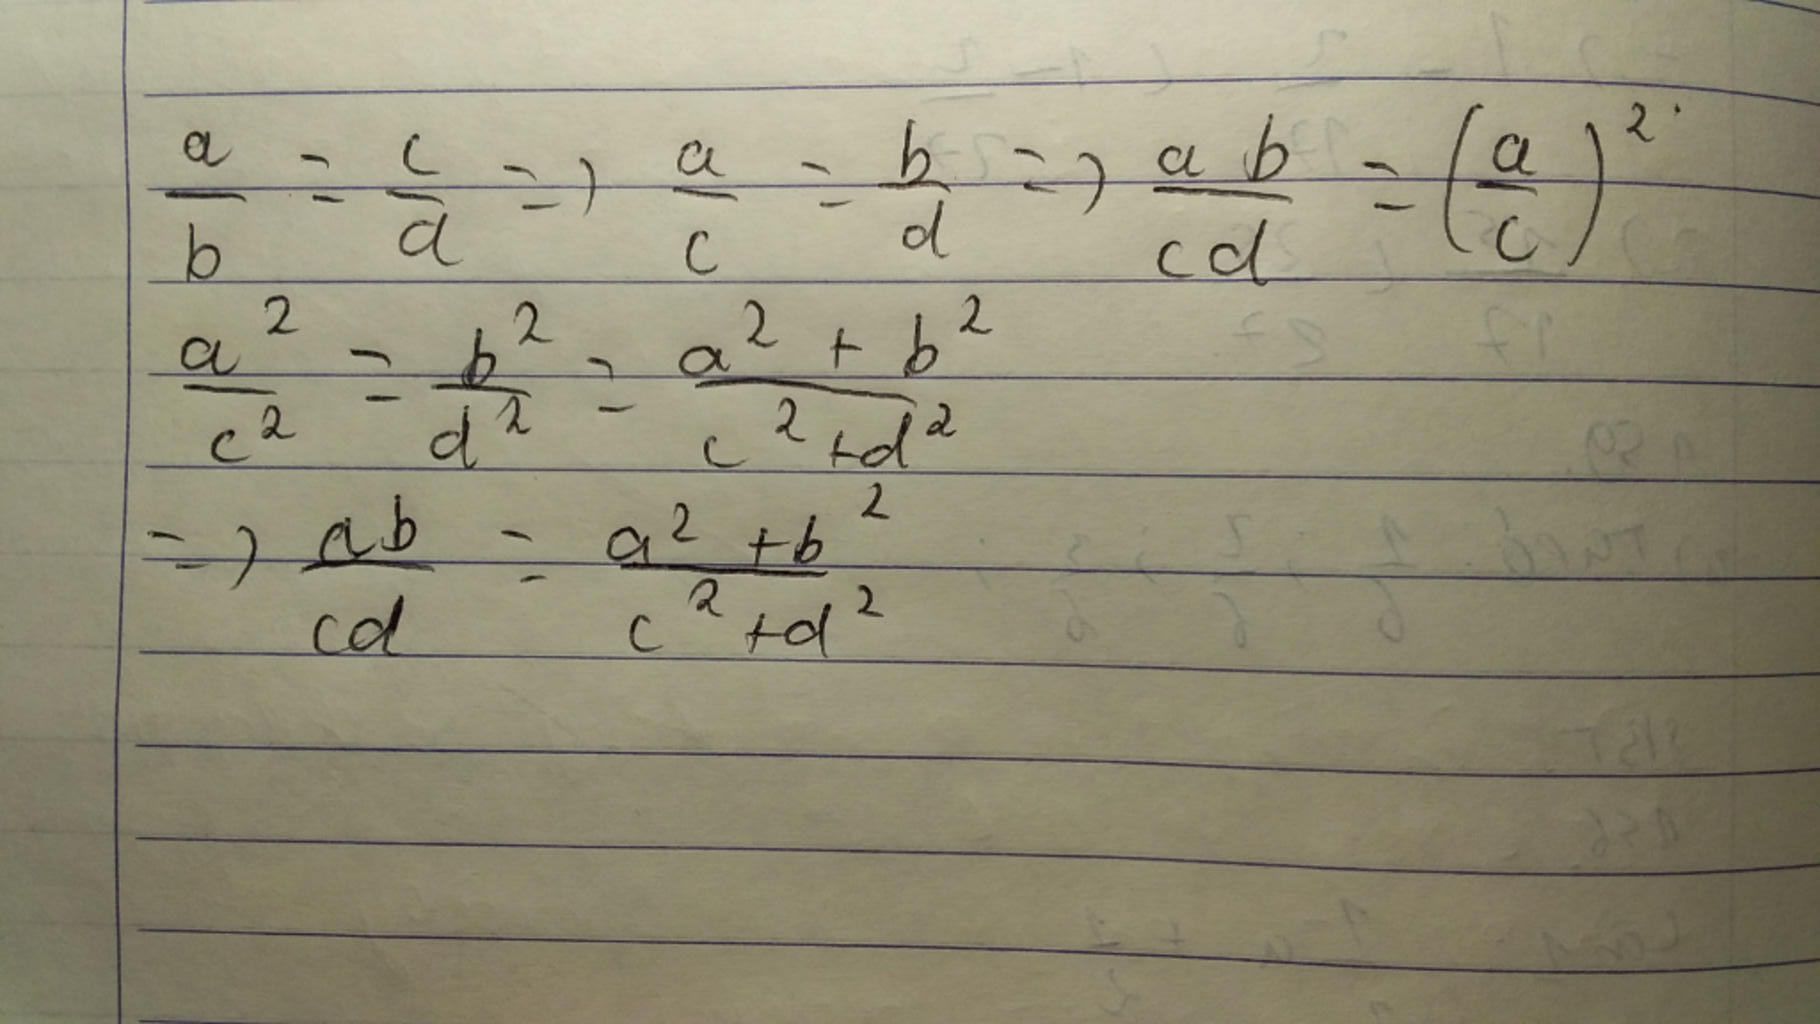 a/b = c/d => a/c = b/d => ab/cd = (a/c)²
a²/c² = b²/d² = a² + b²/c² + d²
=> ab/cd = a² + b²/c² + d²